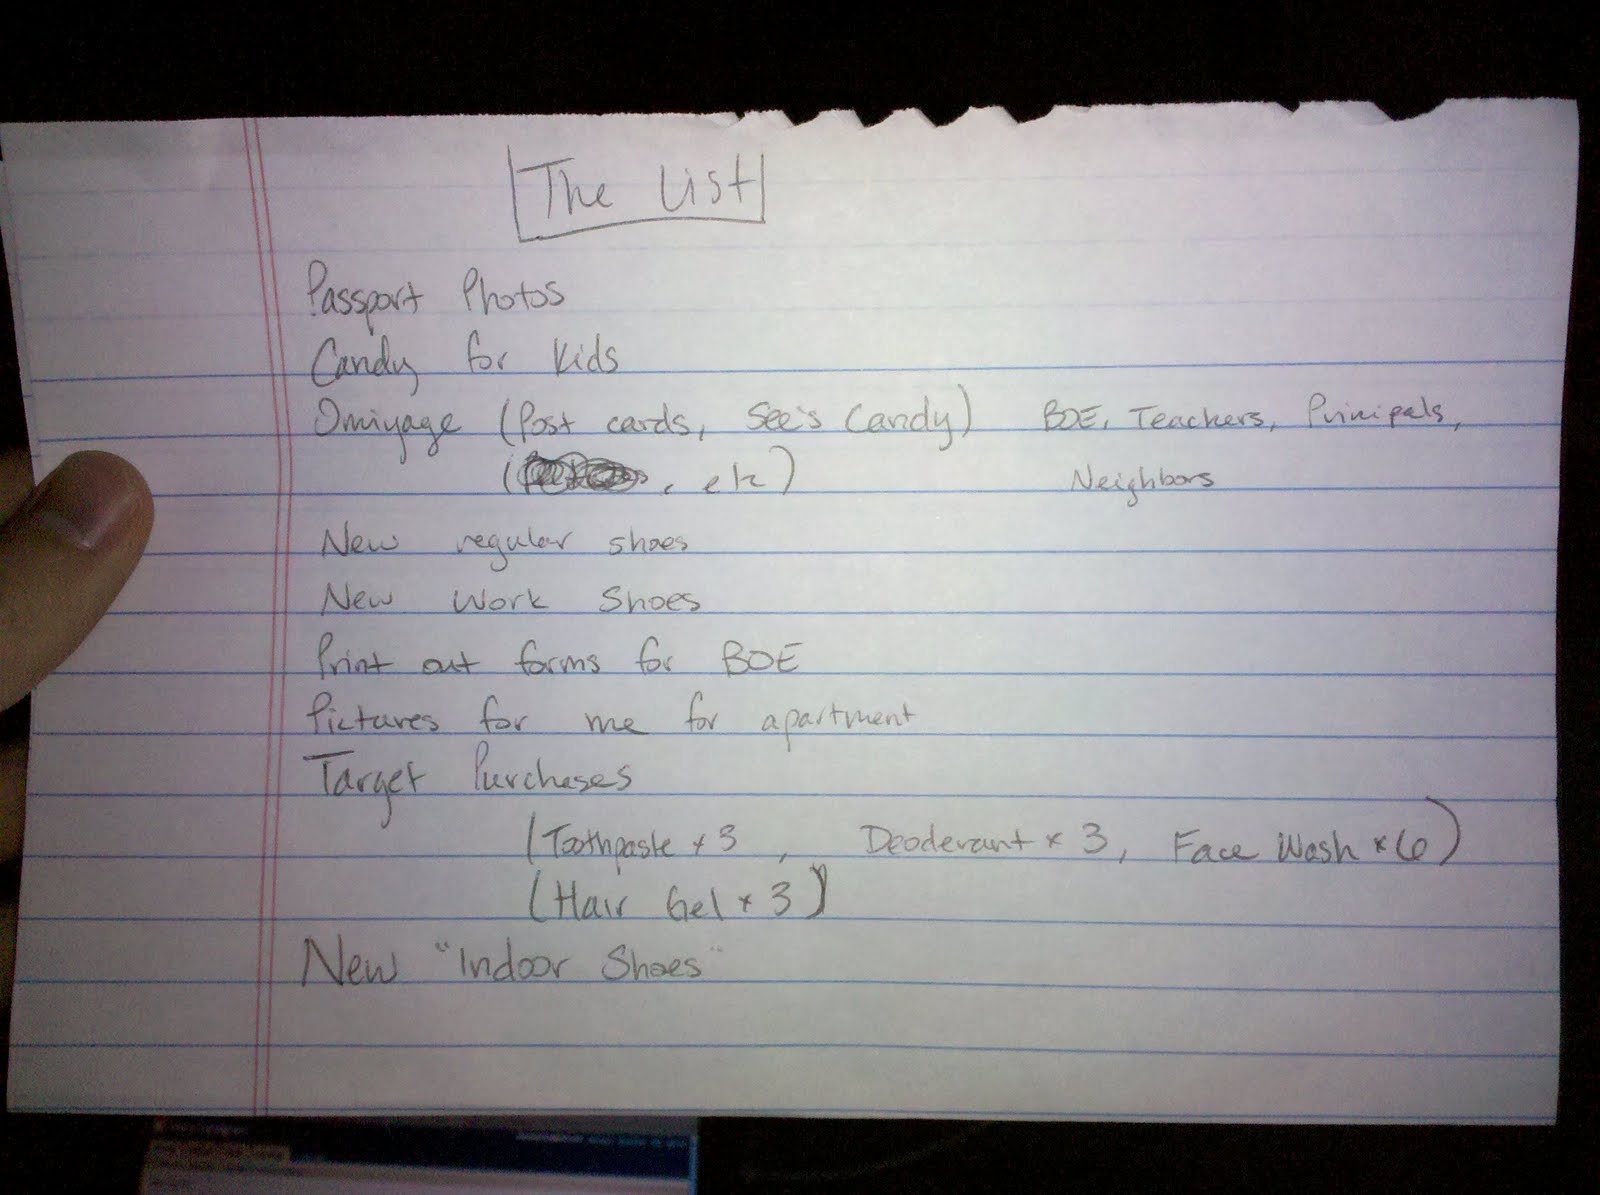 The List
Passport Photos
Candy for Kids
Omiyage (Post cards, See's Candy) BOE, Teachers, Prinipals,
(, etc) Neighbors
New regular shoes
New Work Shoes
Print out forms for BOE
Pictures for me for apartment
Target Purchases
(Toothpaste x 3, Deoderant x 3, Face Wash x 6)
(Hair Gel x 3)
New "Indoor Shoes"